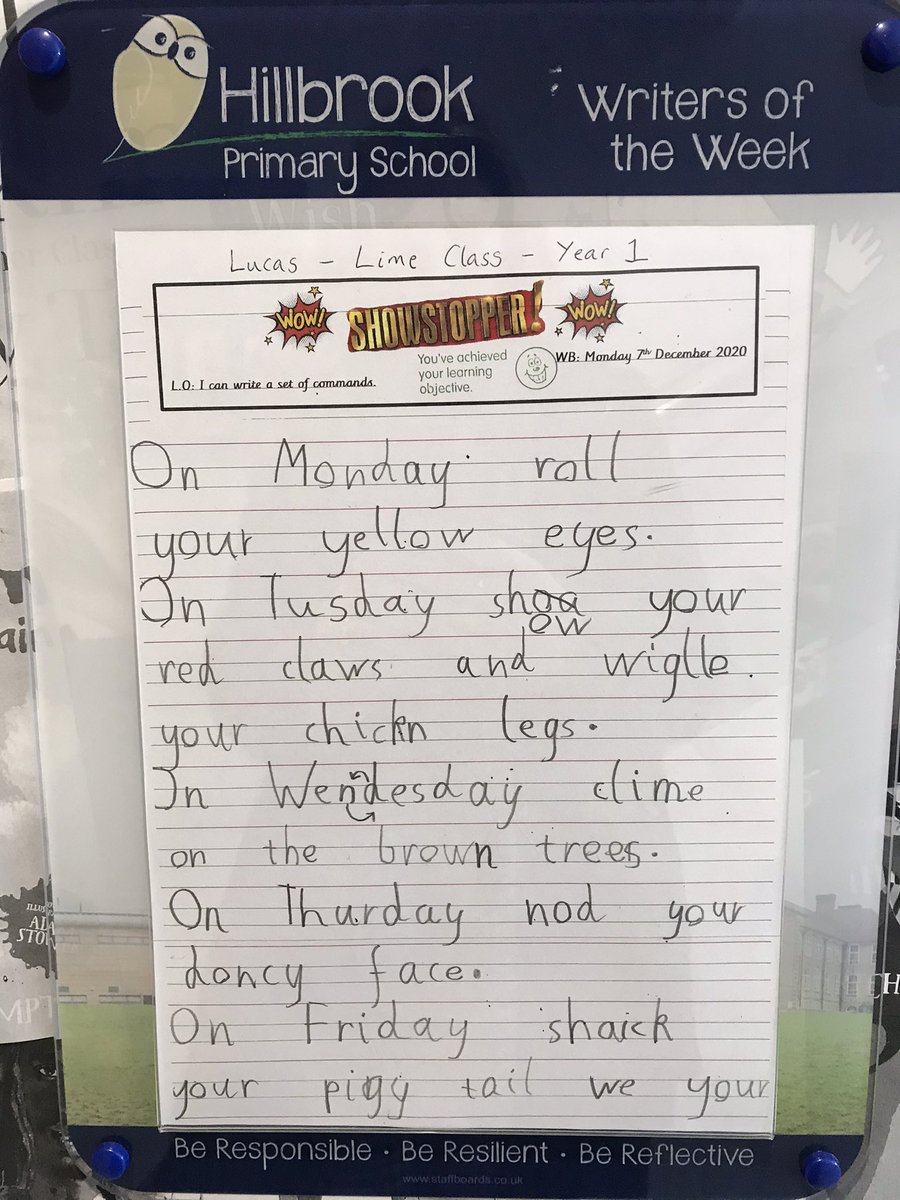 Hillbrook
Primary School
Writers of
the Week
Lucas - Lime Class - Year 1
WOW!
SHOWSTOPPER!
WOW!
You've achieved
your learning
objective.
WB: Monday 7th December 2020
L.O: I can write a set of commands.
On Monday roll
your yellow eyes.
On Tusday shoa your
ow
red claws and wiglle.
your chickn legs.
On Wendesday clime
on the brown trees.
On Thurday nod your
doncy face.
On Friday shaick
your pigy tail we your
Be Responsible · Be Resilient · Be Reflective
www.staffboards.co.uk